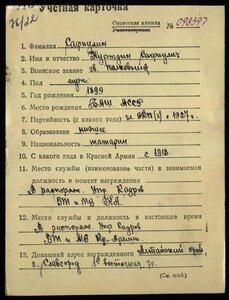 76/22
Учётная карточка
Орденская книжка
Удостоверение № 098397
1. Фамилия Сафиулин
2. Имя и отчество
3. Воинское звание гв. полковник
4. Пол муж.
5. Год рождения 1899
6. Место рождения АССР
7. Партийность (с какого года) чл. ВКП(б) с 1927 г.
8. Образование низшее
9. Национальность татарин
10. С какого года в Красной Армии с 1918
11. Место службы (наименование части) и занимаемая
должность в момент награждения
В распоряж. Упр. Кадров
БТ и МВ
12. Место службы и должность в настоящее время
В распоряж. Упр. Кадров
БТ и МВ Кр. Армии
13. Домашний адрес награжденного Алтайский край
г. Славгород
(См. на об.)